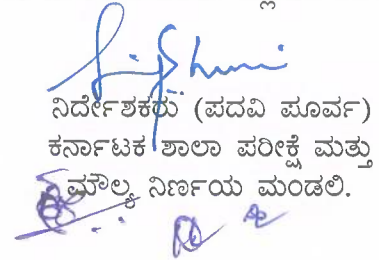 ನಿರ್ದೇಶಕರು (ಪದವಿ ಪೂರ್ವ)
ಕರ್ನಾಟಕ ಶಾಲಾ ಪರೀಕ್ಷೆ ಮತ್ತು
ಮೌಲ್ಯ ನಿರ್ಣಯ ಮಂಡಲಿ.